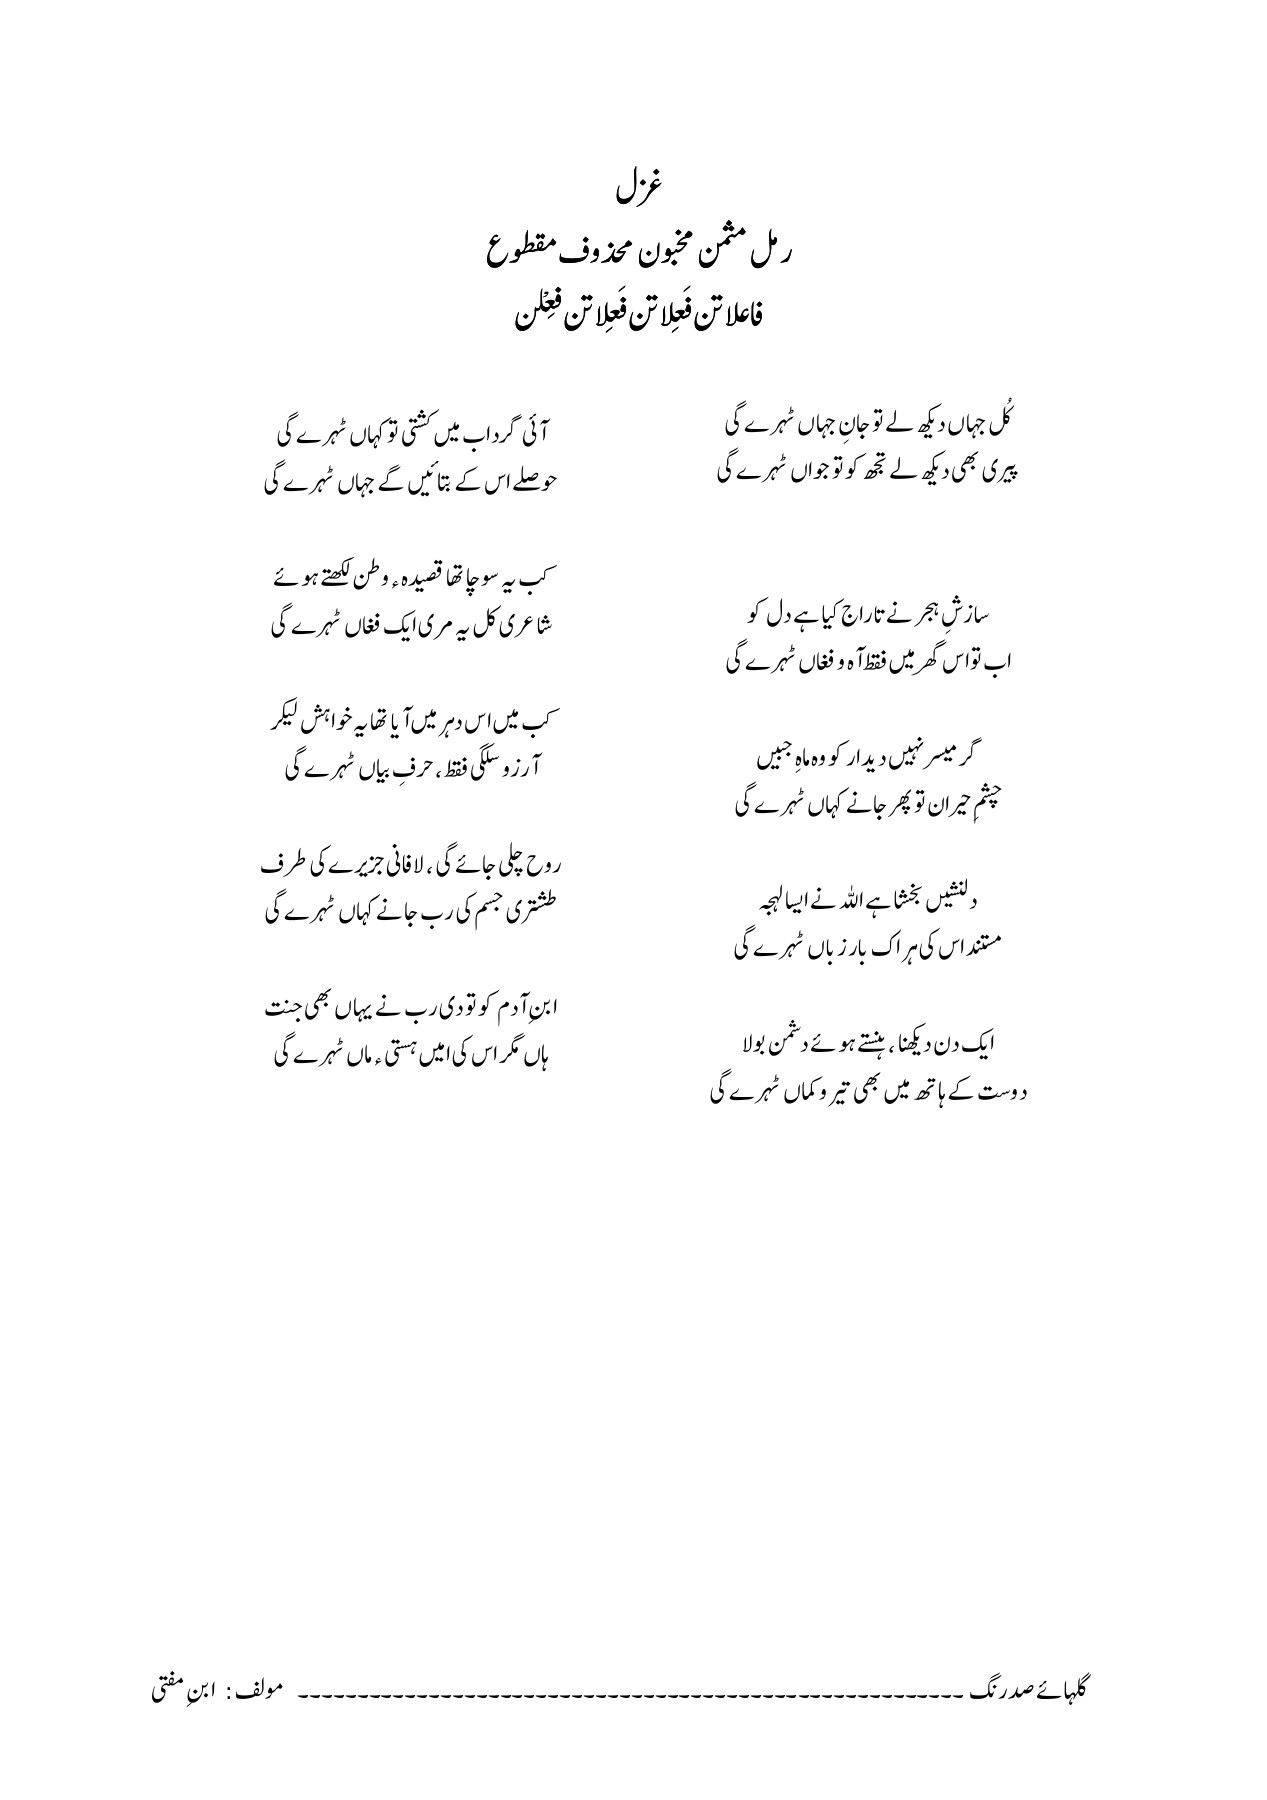 غزل
رمل مثمن مخبون محذوف مقطوع
فاعلاتن فَعِلاتن فَعِلاتن فعِْلن
کُل جہاں دیکھ لے تو جانِ جہاں ٹہرے گی
پیری بھی دیکھ لے تجھ کو تو جواں ٹہرے گی
سازشِ ہجر نے تاراج کیا ہے دل کو
اب تو اس گھر میں فقط آہ و فغاں ٹہرے گی
گر میسر نہیں دیدار کو وہ ماہِ جبیں
چشمِ حیران تو پھر جانے کہاں ٹہرے گی
دلنشیں بخشا ہے اللہ نے ایسا لہجہ
مستند اس کی ہر اک بار زباں ٹہرے گی
ایک دن دیکھنا، ہنستے ہوئے دشمن بولا
دوست کے ہاتھ میں بھی تیر و کماں ٹہرے گی
آئی گرداب میں کشتی تو کہاں ٹہرے گی
حوصلے اس کے بتائیں گے جہاں ٹہرے گی
کب یہ سوچا تھا قصیدہء وطن لکھتے ہوئے
شاعری کل یہ مری ایک فغاں ٹہرے گی
کب میں اس دہر میں آیا تھا یہ خواہش لیکر
آرزو سلگی فقط، حرفِ بیاں ٹہرے گی
روح چلی جائے گی، لافانی جزیرے کی طرف
طشتری جسم کی رب جانے کہاں ٹہرے گی
ابنِ آدم کو تو دی رب نے یہاں بھی جنت
ہاں مگر اس کی امیں ہستیء ماں ٹہرے گی
گلہائے صد رنگ ------------------------------------------------------- مولف : ابنِ مفتی